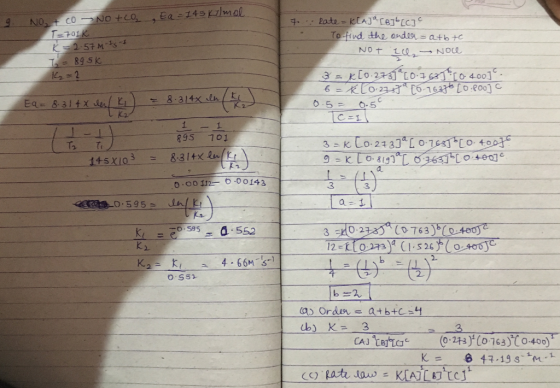 NO₂ + CO → NO + CO₂ , Ea = 145 KJ/mol
T₁ = 701K
K₁ = 2.57 M⁻¹s⁻¹
T₂ = 895K
K₂ = ?
Ea = 8.314 x ln(K₁/K₂) / (1/T₂ - 1/T₁) = 8.314 x ln(K₁/K₂) / (1/895 - 1/701)
145 x 10³ = 8.314 x ln(K₁/K₂) / (0.00112 - 0.00143)
-0.595 = ln(K₁/K₂)
K₁/K₂ = e^-0.595 = 0.552
K₂ = K₁/0.552 = 4.66 M⁻¹s⁻¹
7. Rate = K[A]ᵃ[B]ᵇ[C]ᶜ
To find the order = a+b+c
NO + ½Cl₂ → NOCl
3 = K[0.273]ᵃ[0.763]ᵇ[0.400]ᶜ
6 = K[0.273]ᵃ[0.763]ᵇ[0.800]ᶜ
0.5 = 0.5ᶜ
c = 1
3 = K[0.273]ᵃ[0.763]ᵇ[0.400]ᶜ
9 = K[0.819]ᵃ[0.763]ᵇ[0.400]ᶜ
1/3 = (1/3)ᵃ
a = 1
3 = K(0.273)ᵃ(0.763)ᵇ(0.400)ᶜ
12 = K(0.273)ᵃ(1.526)ᵇ(0.400)ᶜ
1/4 = (1/2)ᵇ = (1/2)²
b = 2
(a) Order = a+b+c = 4
(b) K = 3 / [A]ᵃ[B]ᵇ[C]ᶜ = 3 / (0.273)¹(0.763)²(0.400)¹
K = 47.19 s⁻¹M⁻²
(c) Rate law = K[A]¹[B]²[C]¹